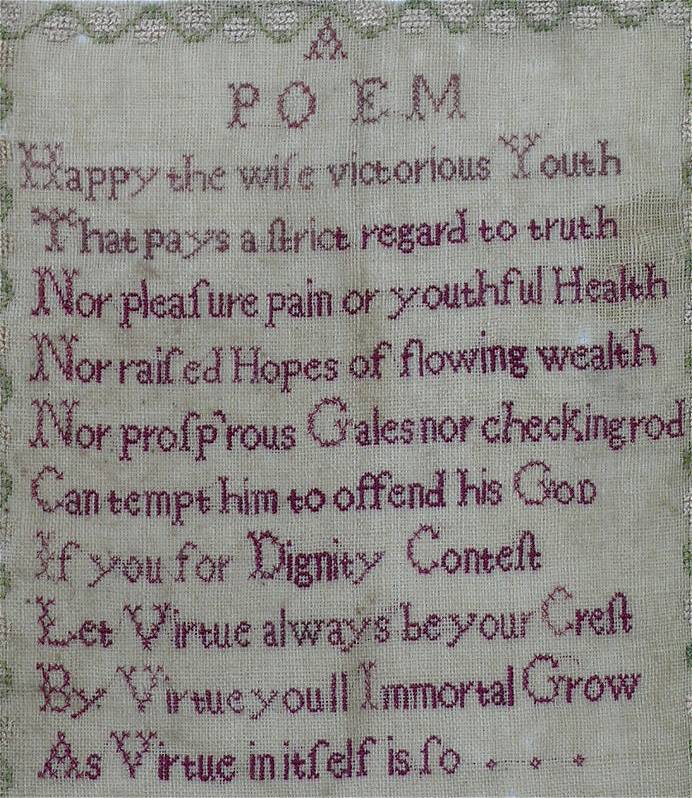 A
POEM
Happy the wiſe victorious Youth
That pays a ſtrict regard to truth
Nor pleaſure pain or youthful Health
Nor raiſed Hopes of flowing wealth
Nor proſp'rous Gales nor checking rod
Can tempt him to offend his GOD
If you for Dignity Conteſt
Let Virtue always be your Creſt
By Virtue youll Immortal Grow
As Virtue in itſelf is ſo . . .